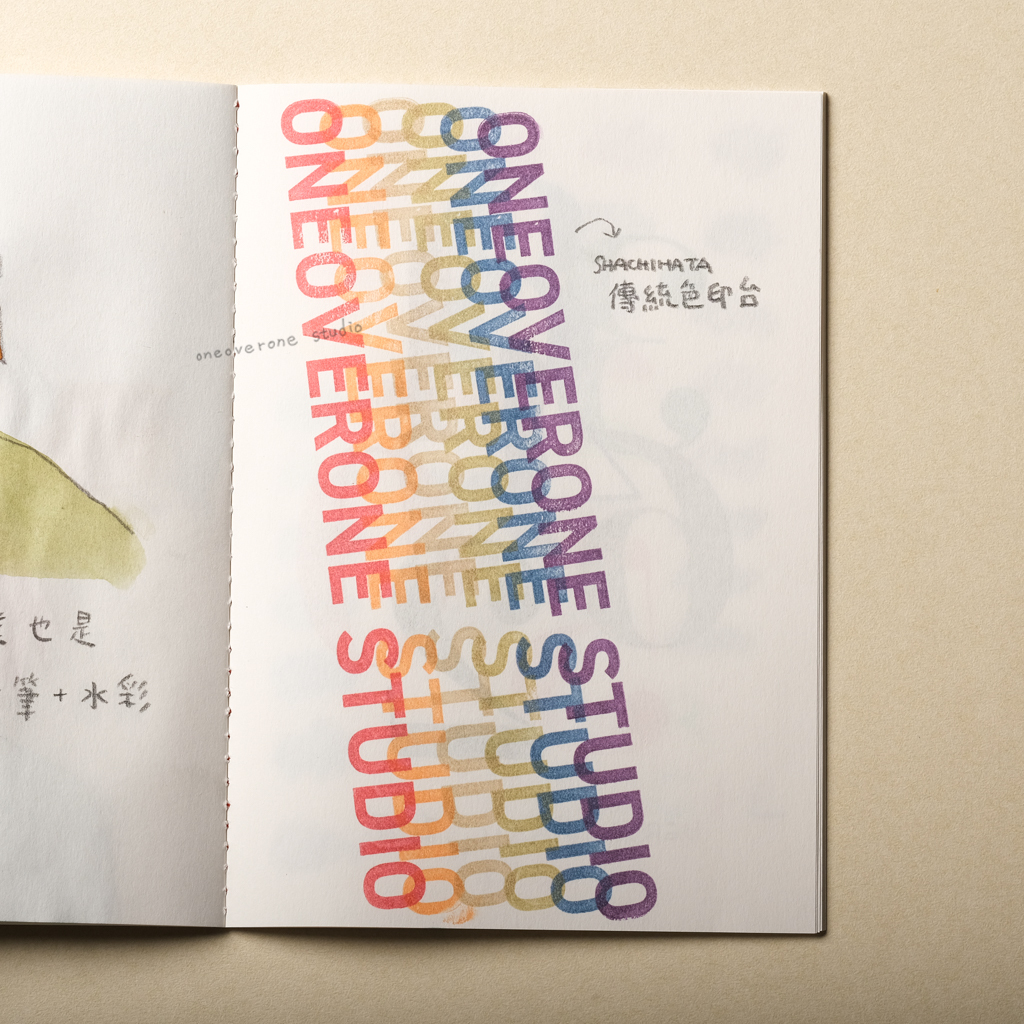 也是
筆+水彩
oneoverone studio
ONEOVERONE STUDIO
ONEOVERONE STUDIO
ONEOVERONE STUDIO
ONEOVERONE STUDIO
ONEOVERONE STUDIO
ONEOVERONE STUDIO
SHACHIHATA
傳統色印台